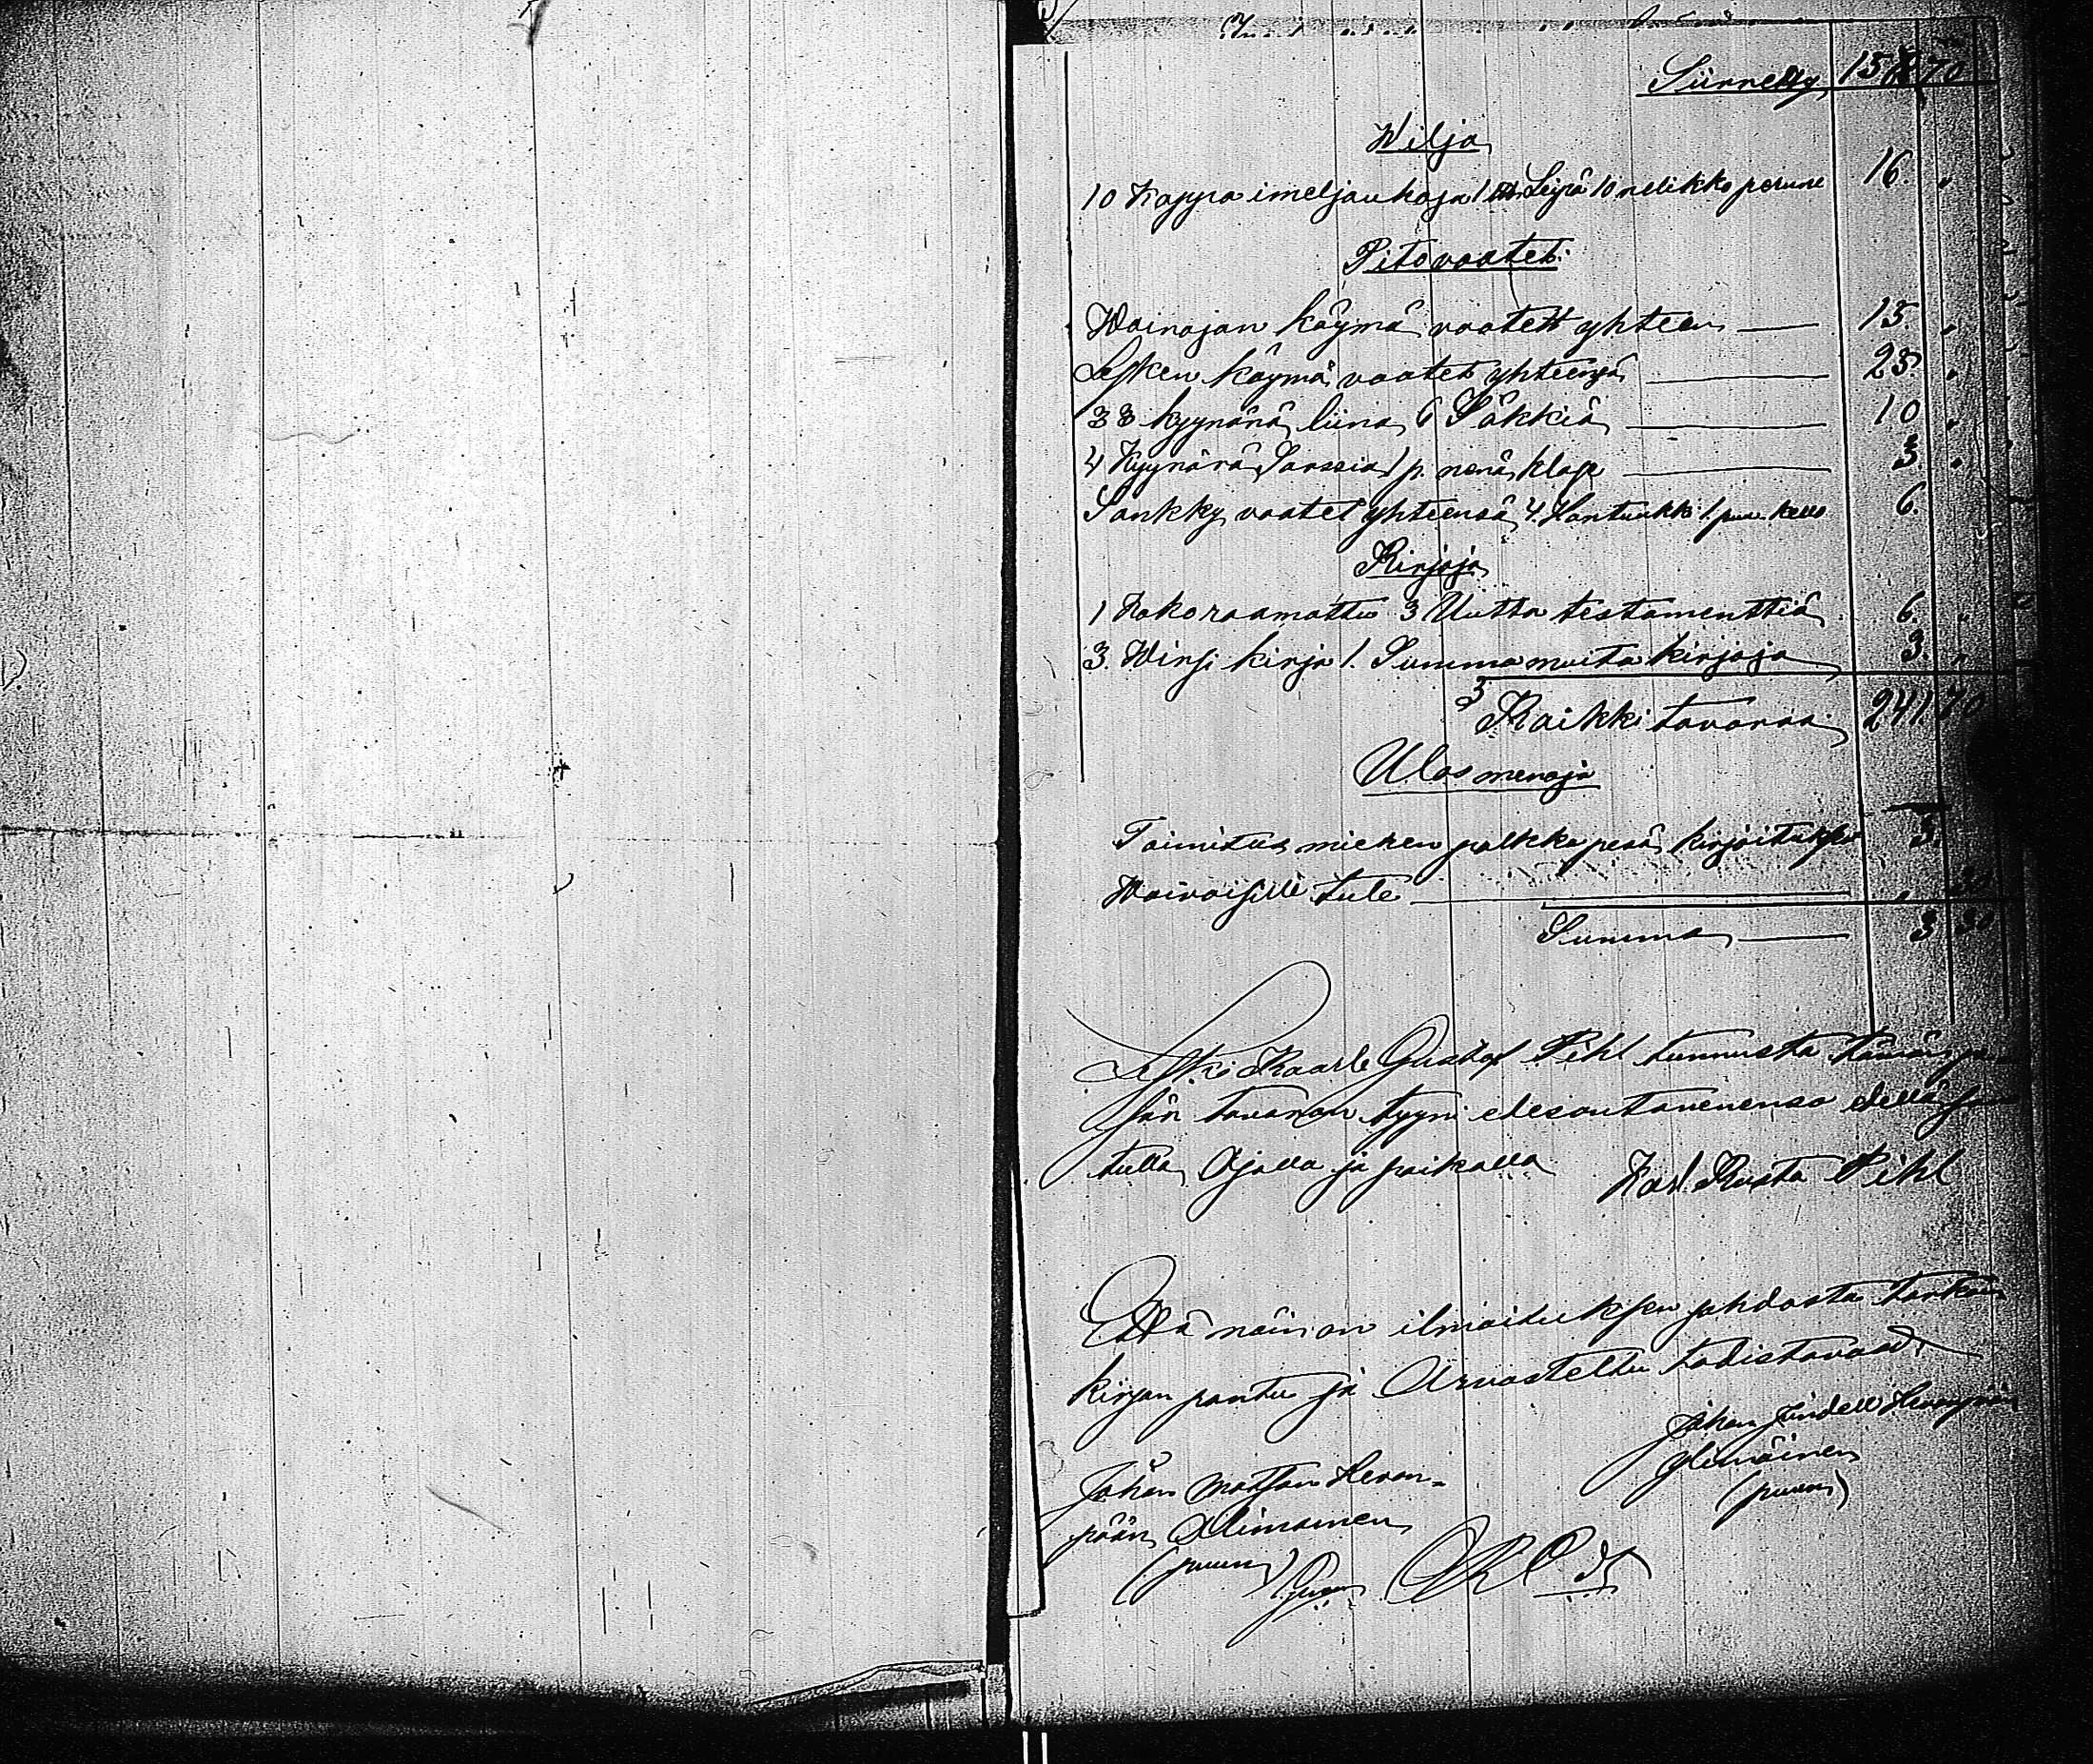 Siirretty 158 70
Wilja
10 Kappa imeljauhoja 1 Leipä 10 nelikko perune 16. "
Pitovaatet.
Wainajan käymä vaatett yhteen — 15. "
Lesken käymä vaatet yhteensä — 23. "
38 kyynärä liina 6 Säkkiä — 10 "
4 Kyynärä Sarssia 1 p. nenä — 3. "
Sänkky vaatet yhteensä 4. 1. kello 6.
Kirjoja
1 Kokoraamattu 3 Uutta testamenttiä 6. "
3. Wirsi kirja 1. Summa muita kirjoja 3. "
Kaikki tavaraa 241. 70
Ulosmenoja
Toimitus miehen palkka perä kirjoituksta 3.
Waivaisille tule — " 30
Summa — 3 30
Leski Kaarle Gustaf Pihl tunnusta tämän
tavaran tyyni edesantaneensa edellä
tulla Ajalla ja paikalla Karl Kusta Pihl
Että näin on ilmoituksen johdosta
kirjan pantu ja Arvosteltu todistavat
Johan Lindell
Ylimäinen
(puum)
Johan Matsson Hevon-
pään Alimainen
(puum)